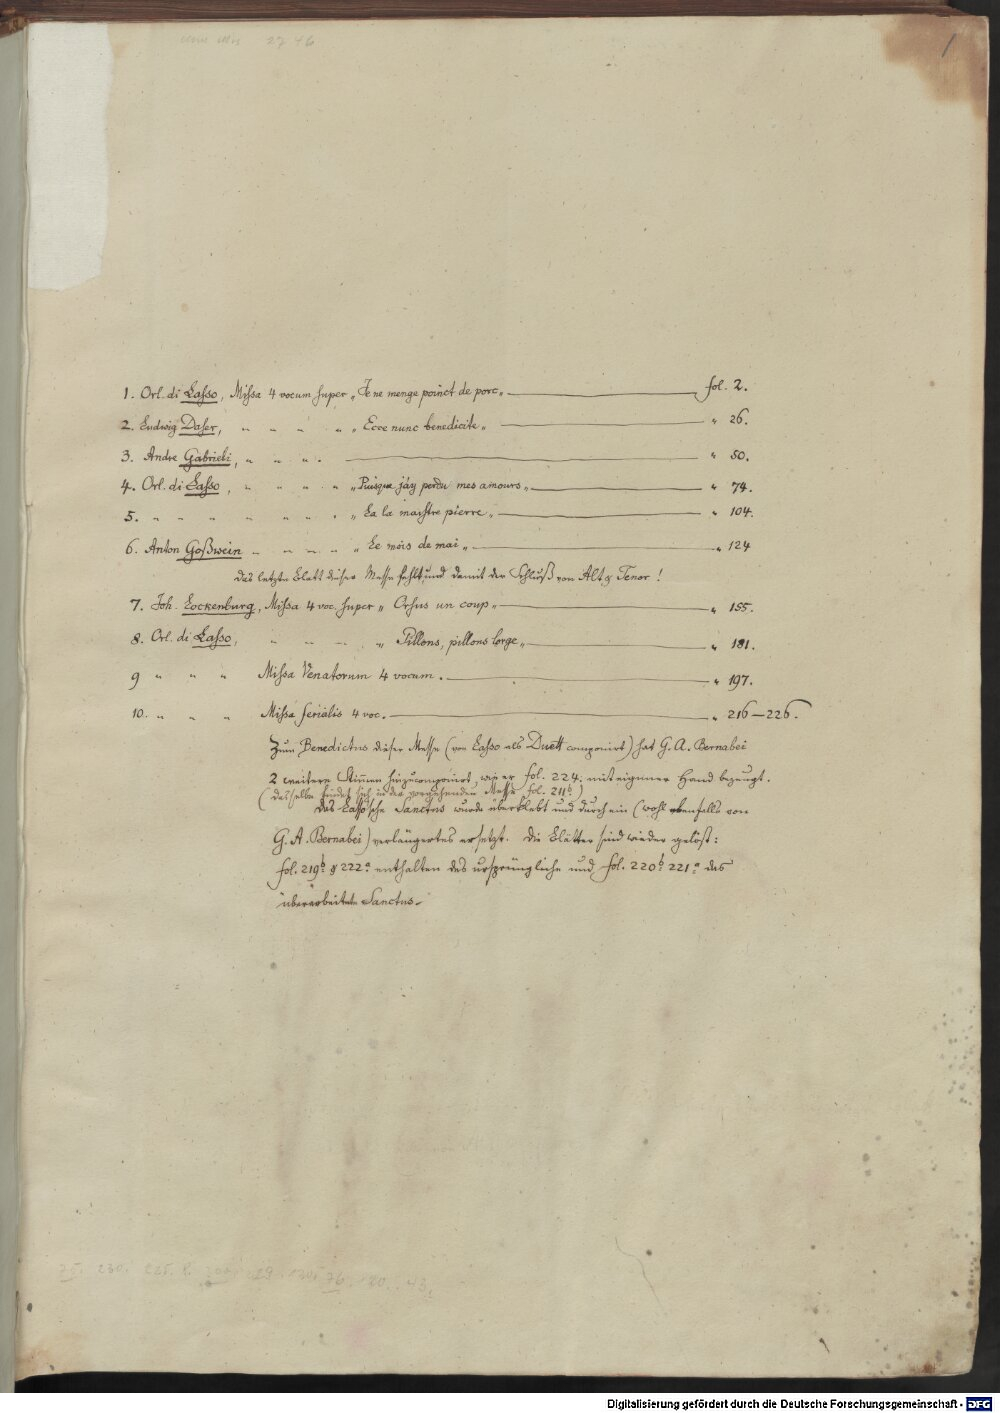 1
1. Orl. di Lasso, Missa 4 vocum super „Je ne menge poinct de porc„ fol. 2.
2. Ludwig Daser, „ „ „ „ „Ecce nunc benedicite„ „ 26.
3. Andre Gabrieli, „ „ „ „ 50.
4. Orl. di Lasso, „ „ „ „ „Puisque j'ay perdu mes amours„ „ 74.
5. „ „ „ „ „ „ „ „La la maistre pierre„ „ 104.
6. Anton Goßwein „ „ „ „ „Le mois de mai„ „ 124
Das letzte Blatt dieser Messe fehlt und damit der Schluß von Alt & Tenor!
7. Joh. Lockenburg, Missa 4 voc. super „Orsus un coup„ „ 155.
8. Orl. di Lasso, „ „ „ „ „Pillons, pillons lorge„ „ 181.
9 „ „ „ Missa Venatorum 4 vocum. „ 197.
10. „ „ „ Missa ferialis 4 voc. „ 216–226.
Zum Benedictus dieser Messe (von Lasso als Duett componirt) hat G. A. Bernabei
2 weitere Stimmen hinzucomponirt, wie er fol. 224. mit eigener Hand bezeugt.
(dasselbe findet sich in der vorgehenden Messe fol. 211b.)
Das Lasso'sche Sanctus wurde überklebt und durch ein (wohl ebenfalls von
G. A. Bernabei) verlängertes ersetzt. Die Blätter sind wieder gelöst:
fol. 219b & 222a enthalten das ursprüngliche und fol. 220b 221a das
überarbeitete Sanctus.
Digitalisierung gefördert durch die Deutsche Forschungsgemeinschaft - DFG